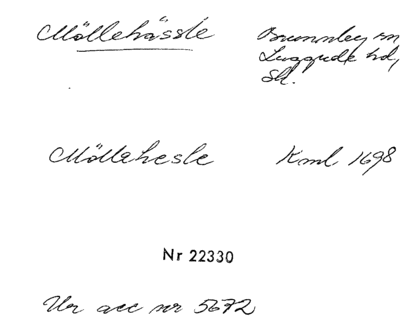 Möllehässle Brunnby sn
Luggude hd,
Sk.
Möllehesle Kml. 1698
Nr 22330
Ur acc nr 5672